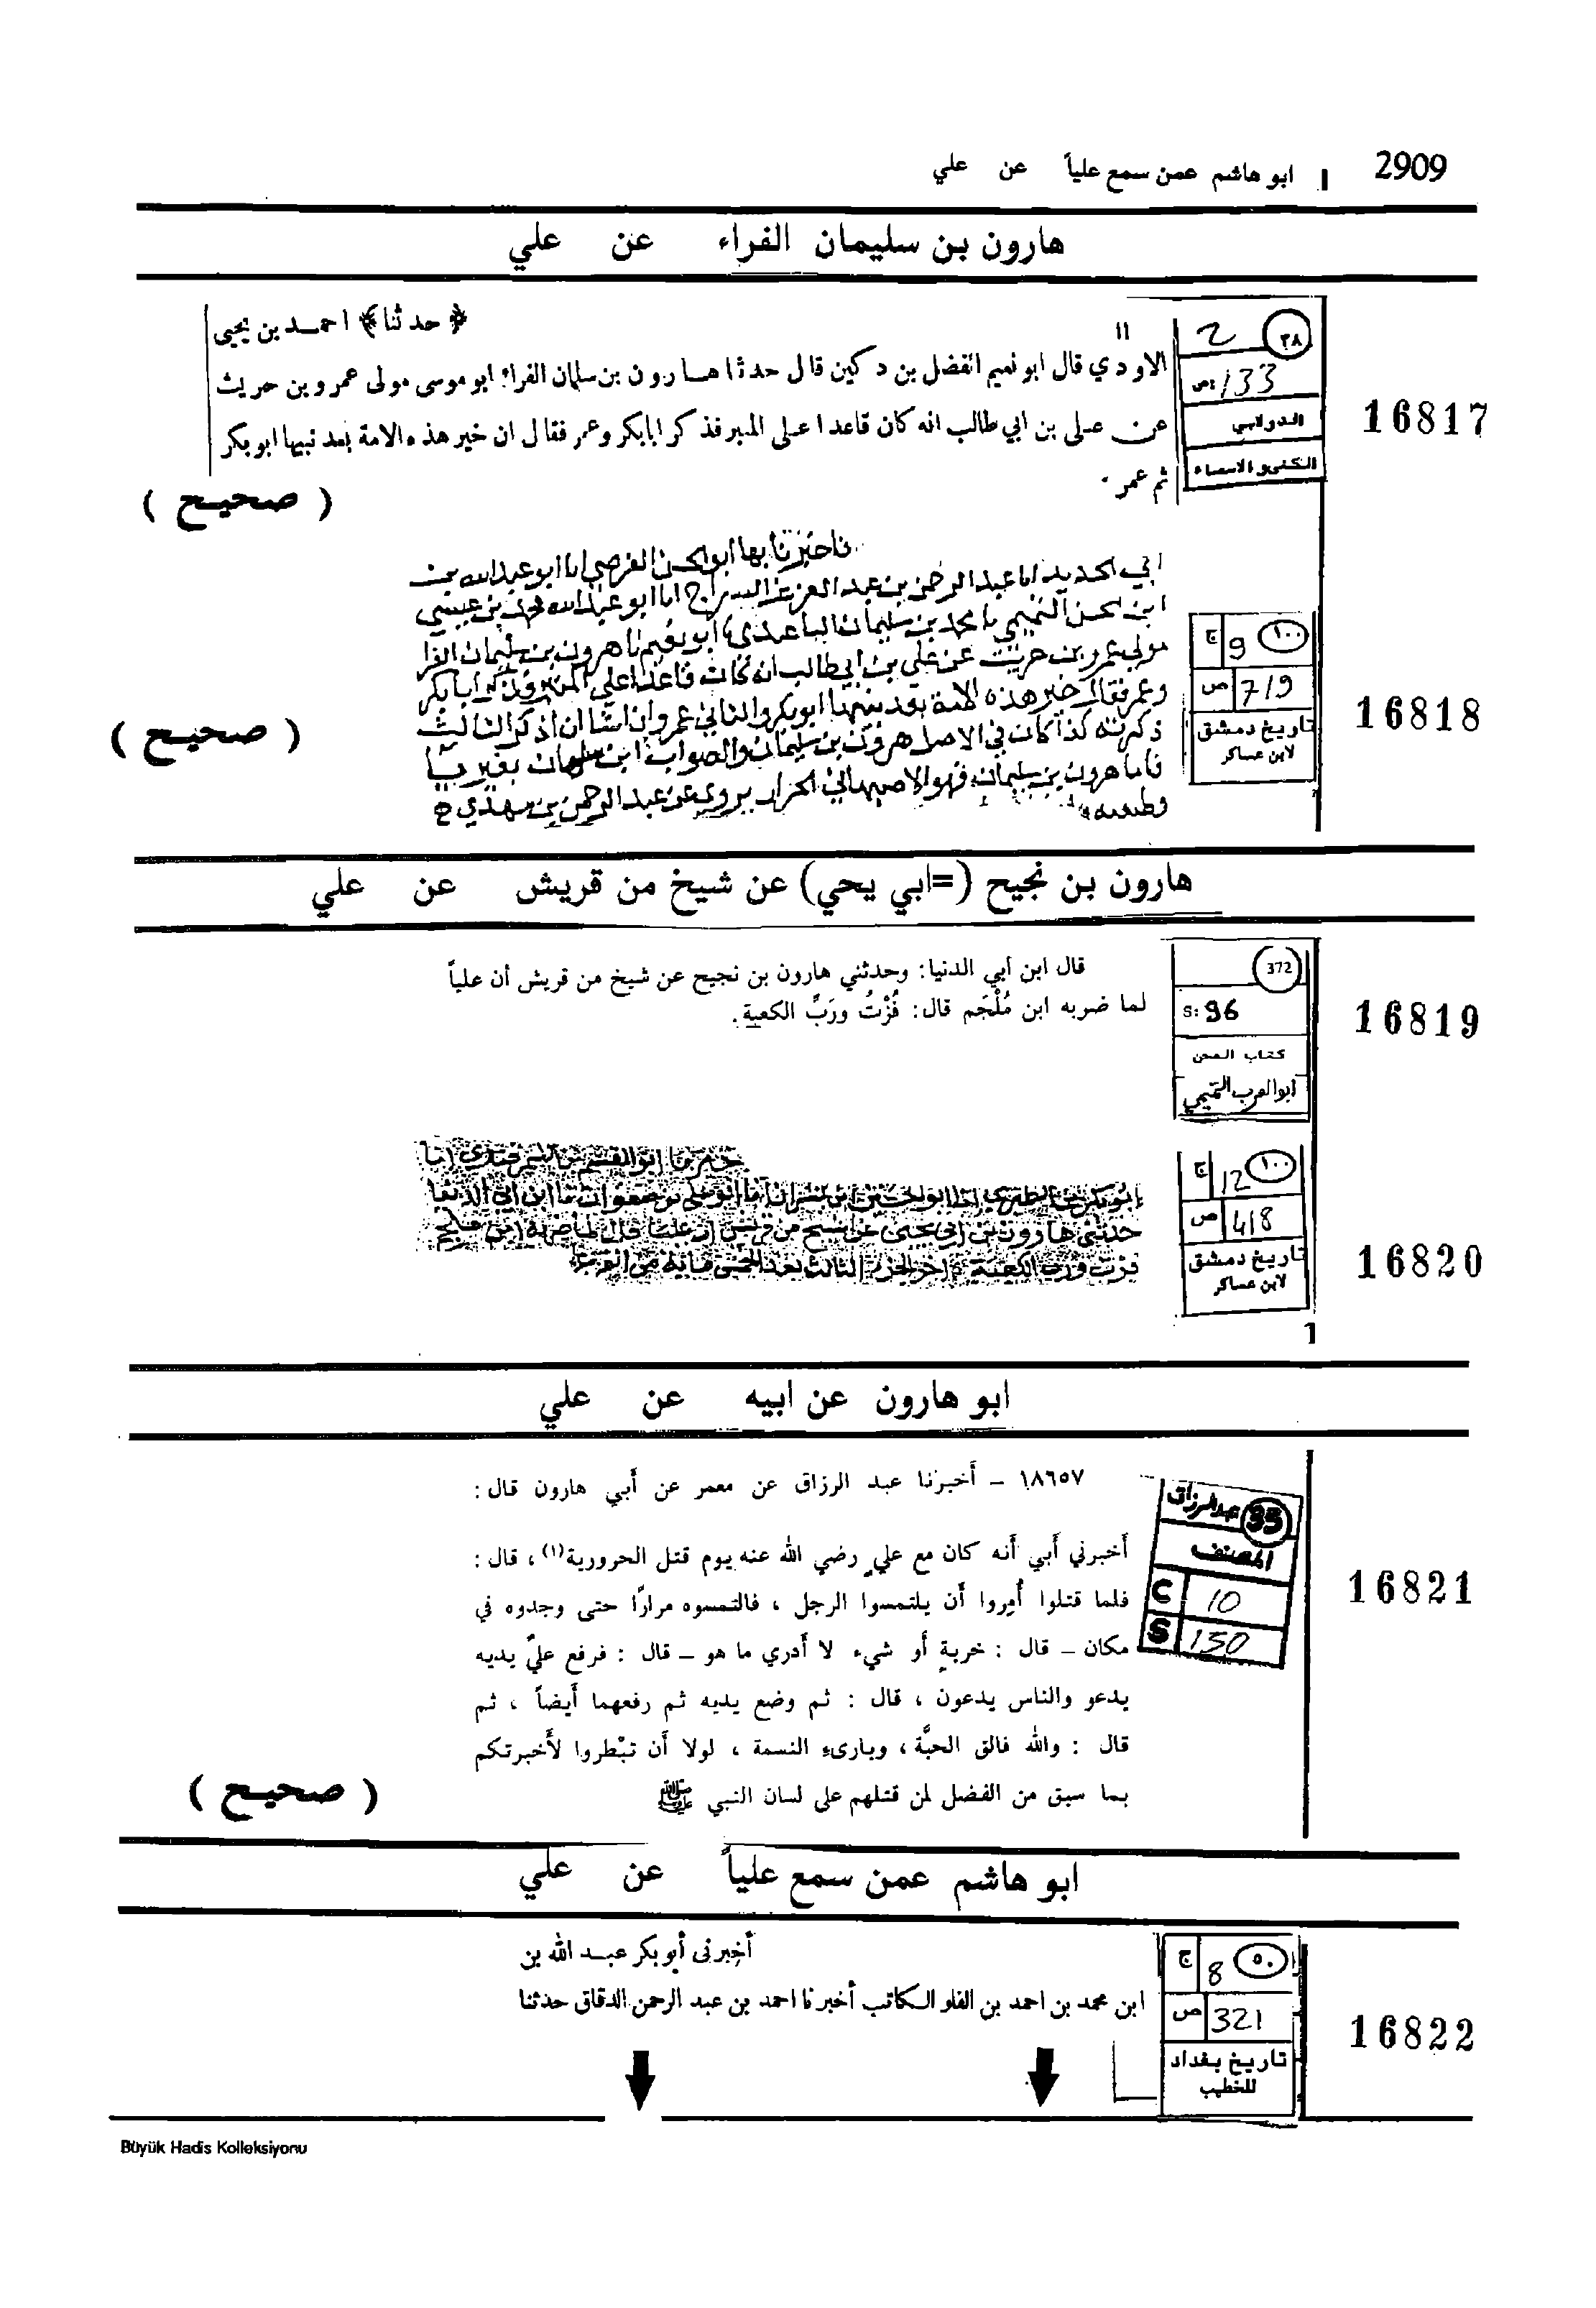 2909 ا ابو هاشم عمن سمع علياً عن علي
هارون بن سليمان الفراء عن علي
﴿ حدثنا ﴾ احمد بن يحيى
الاودي قال ابو نعيم الفضل بن دكين قال حدثنا هارون بن سلمان الفراء ابو موسى مولى عمرو بن حريث
عن علي بن ابي طالب انه كان قاعدا على المنبر فذكر ابا بكر وعمر فقال ان خير هذه الامة بعد نبيها ابو بكر
ثم عمر .
٣٨ 2
ص: 133
الدولابي
الكنى والاسماء
16817
( صحيح )
فاخبرنا بها ابو الحسن الفرضي انا ابو عبد الله بن
ابي الحديد انا عبد الرحمن بن عبد العزيز السراج انا ابو عبد الله محمد بن عيسى
ابن الحسن التميمي نا محمد بن سليمان الباغندي نا ابو نعيم نا هرون بن سليمان الفرا
مولى عمرو بن حريث عن علي بن ابي طالب انه كان قاعدا على المنبر فذكر ابا بكر
وعمر فقال خير هذه الامة بعد نبيها ابو بكر والثاني عمر وان اشا ان اذكر الثالث
ذكرته كذا كان في الاصل هرون بن سليمان والصواب ابن سلمان بغير يا
فاما هرون بن سليمان فهو الاصبهاني الخزاز يروي عن عبد الرحمن بن مهدي
١٠٠ 9 ج
719 ص
تاريخ دمشق
لابن عساكر
16818
( صحيح )
هارون بن نجيح (=ابي يحي) عن شيخ من قريش عن علي
قال ابن أبي الدنيا: وحدثني هارون بن نجيح عن شيخ من قريش أن علياً
لما ضربه ابن مُلْجَم قال: فُزْتُ ورَبِّ الكعبة.
372
S: 96
كتاب المحن
ابو العرب التميمي
16819
اخبرنا ابو القسم بن السمرقندي انا
ابو بكر بن الطبري انا ابو الحسين بن بشران انا ابو علي بن صفوان نا ابن ابي الدنيا
حدثني هارون بن ابي يحيى عن شيخ من قريش ان عليا قال لما ضربه ابن ملجم
فزت ورب الكعبة اخر الجزء الثالث بعد الخمس مائة من الفرع
١٠٠ 12 ج
418 ص
تاريخ دمشق
لابن عساكر
16820
1
ابو هارون عن ابيه عن علي
١٨٦٥٧ – أخبرنا عبد الرزاق عن معمر عن أبي هارون قال :
أخبرني أبي أنه كان مع علي رضي الله عنه يوم قتل الحرورية(١) ، قال :
فلما قتلوا أُمِروا أن يلتمسوا الرجل ، فالتمسوه مرارًا حتى وجدوه في
مكان – قال : خربةٍ أو شيء لا أدري ما هو – قال : فرفع عليّ يديه
يدعو والناس يدعون ، قال : ثم وضع يديه ثم رفعهما أيضاً ، ثم
قال : والله فالق الحبَّة ، وبارىء النسمة ، لولا أن تبْطروا لأخبرتكم
بما سبق من الفضل لمن قتلهم على لسان النبي ﷺ
35 عبدالرزاق
المصنف
C 10
S 150
16821
( صحيح )
ابو هاشم عمن سمع علياً عن علي
أخبرنى أبو بكر عبد الله بن
ابن محمد بن احمد بن الفلو الكاتب أخبرنا احمد بن عبد الرحمن الدقاق حدثنا
٥٠ 8 ج
321 ص
تاريخ بغداد
للخطيب
16822
Büyük Hadis Kolleksiyonu